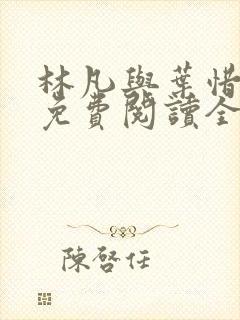 林凡與葉惜
免費閱讀全
陳啓任